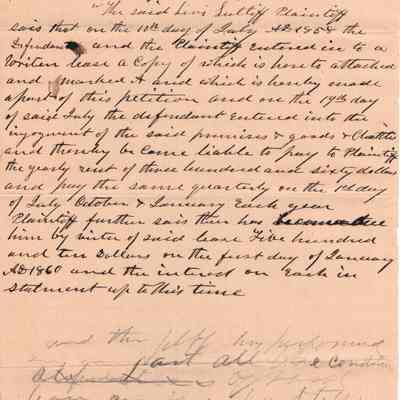 "The said Levi Sutliff Plaintiff
sais that on the 10th day of July AD 1858 the
Defendant and the Plaintiff entered in to a
Writen lease a Copy of which is here to attached
and marked A and which is hereby made
a part of this petition and on the 19th day
of said July the defendant entered into the
injoyment of the said premises & goods & Chattles
and thereby be came liable to pay to Plaintiff
the yearly rent of three hundred and sixty dollars
and pay the same quarterly on the 1st day
of July October & January Each year
Plaintiff further sais ther has become due
him by virter of said lease Five hundred
and ten Dollars on the first day of January
AD 1860 and the interest on Each in
stalment up to this time
and the plff has performed
part all